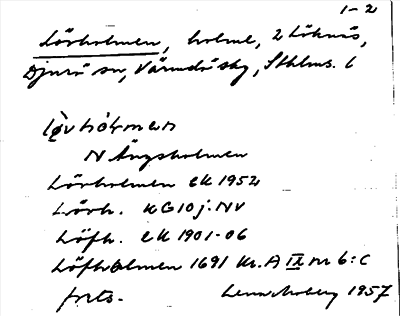 1-2
Lövholmen, holme, 2 Löknäs,
Djurö sn, Värmdö skg, Sthlms. l
lø̀vhól̀mən
N Ängsholmen
Lövholmen ek 1952
Lövh. KG 10 j. NV
Löfh. ek 1901-06
Löfholmen 1691 Kr. A IX nr 6:c
forts. Lena Moberg 1957